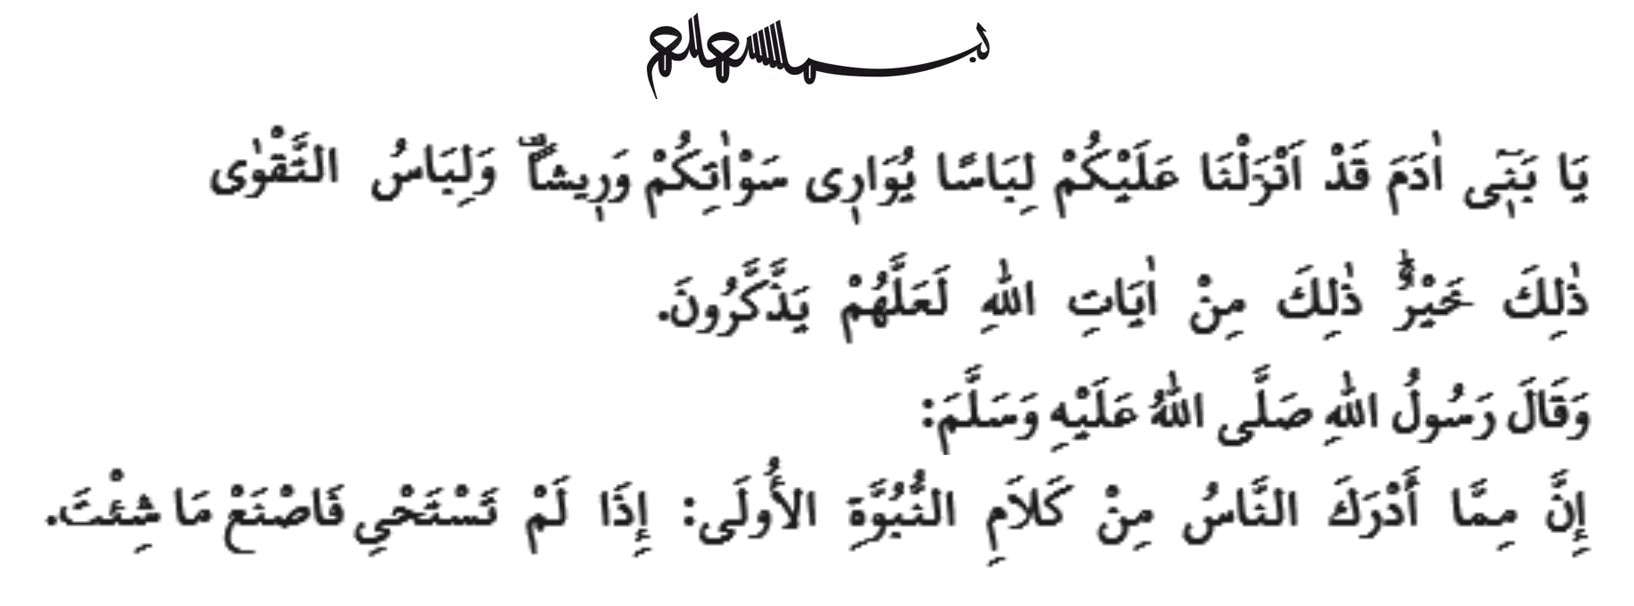 بسم الله الرحمن الرحيم
يَا بَنٖٓى اٰدَمَ قَدْ اَنْزَلْنَا عَلَيْكُمْ لِبَاسًا يُوَارٖى سَوْاٰتِكُمْ وَرٖيشًاۜ وَلِبَاسُ التَّقْوٰى
ذٰلِكَ خَيْرٌۜ ذٰلِكَ مِنْ اٰيَاتِ اللّٰهِ لَعَلَّهُمْ يَذَّكَّرُونَ.
وَقَالَ رَسُولُ اللّٰهِ صَلَّى اللّٰهُ عَلَيْهِ وَسَلَّمَ:
إِنَّ مِمَّا أَدْرَكَ النَّاسُ مِنْ كَلاَمِ النُّبُوَّةِ الأُولَى: إِذَا لَمْ تَسْتَحْيِ فَاصْنَعْ مَا شِئْتَ.